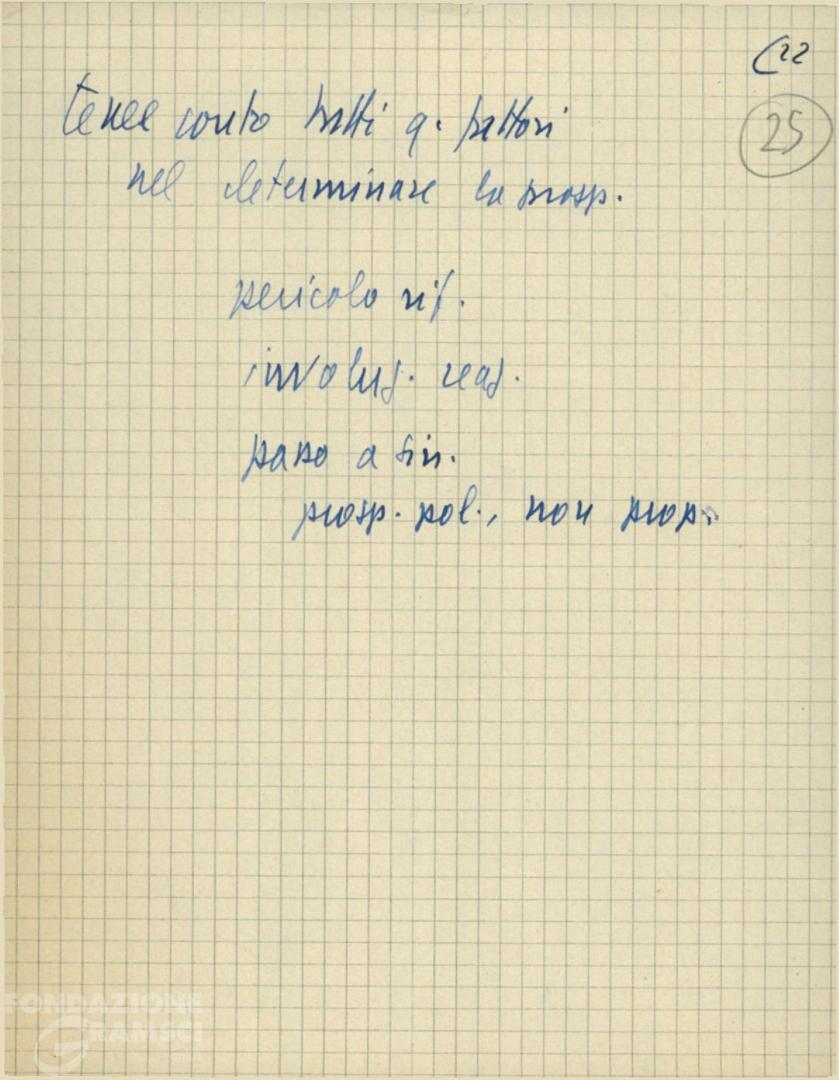 (22
25
tener conto tutti q. fattori
nel determinare la prosp.
pericolo rif.
involuz. reaz.
passo a sin.
prosp. pol., non prop.
FONDAZIONE
GRAMSCI